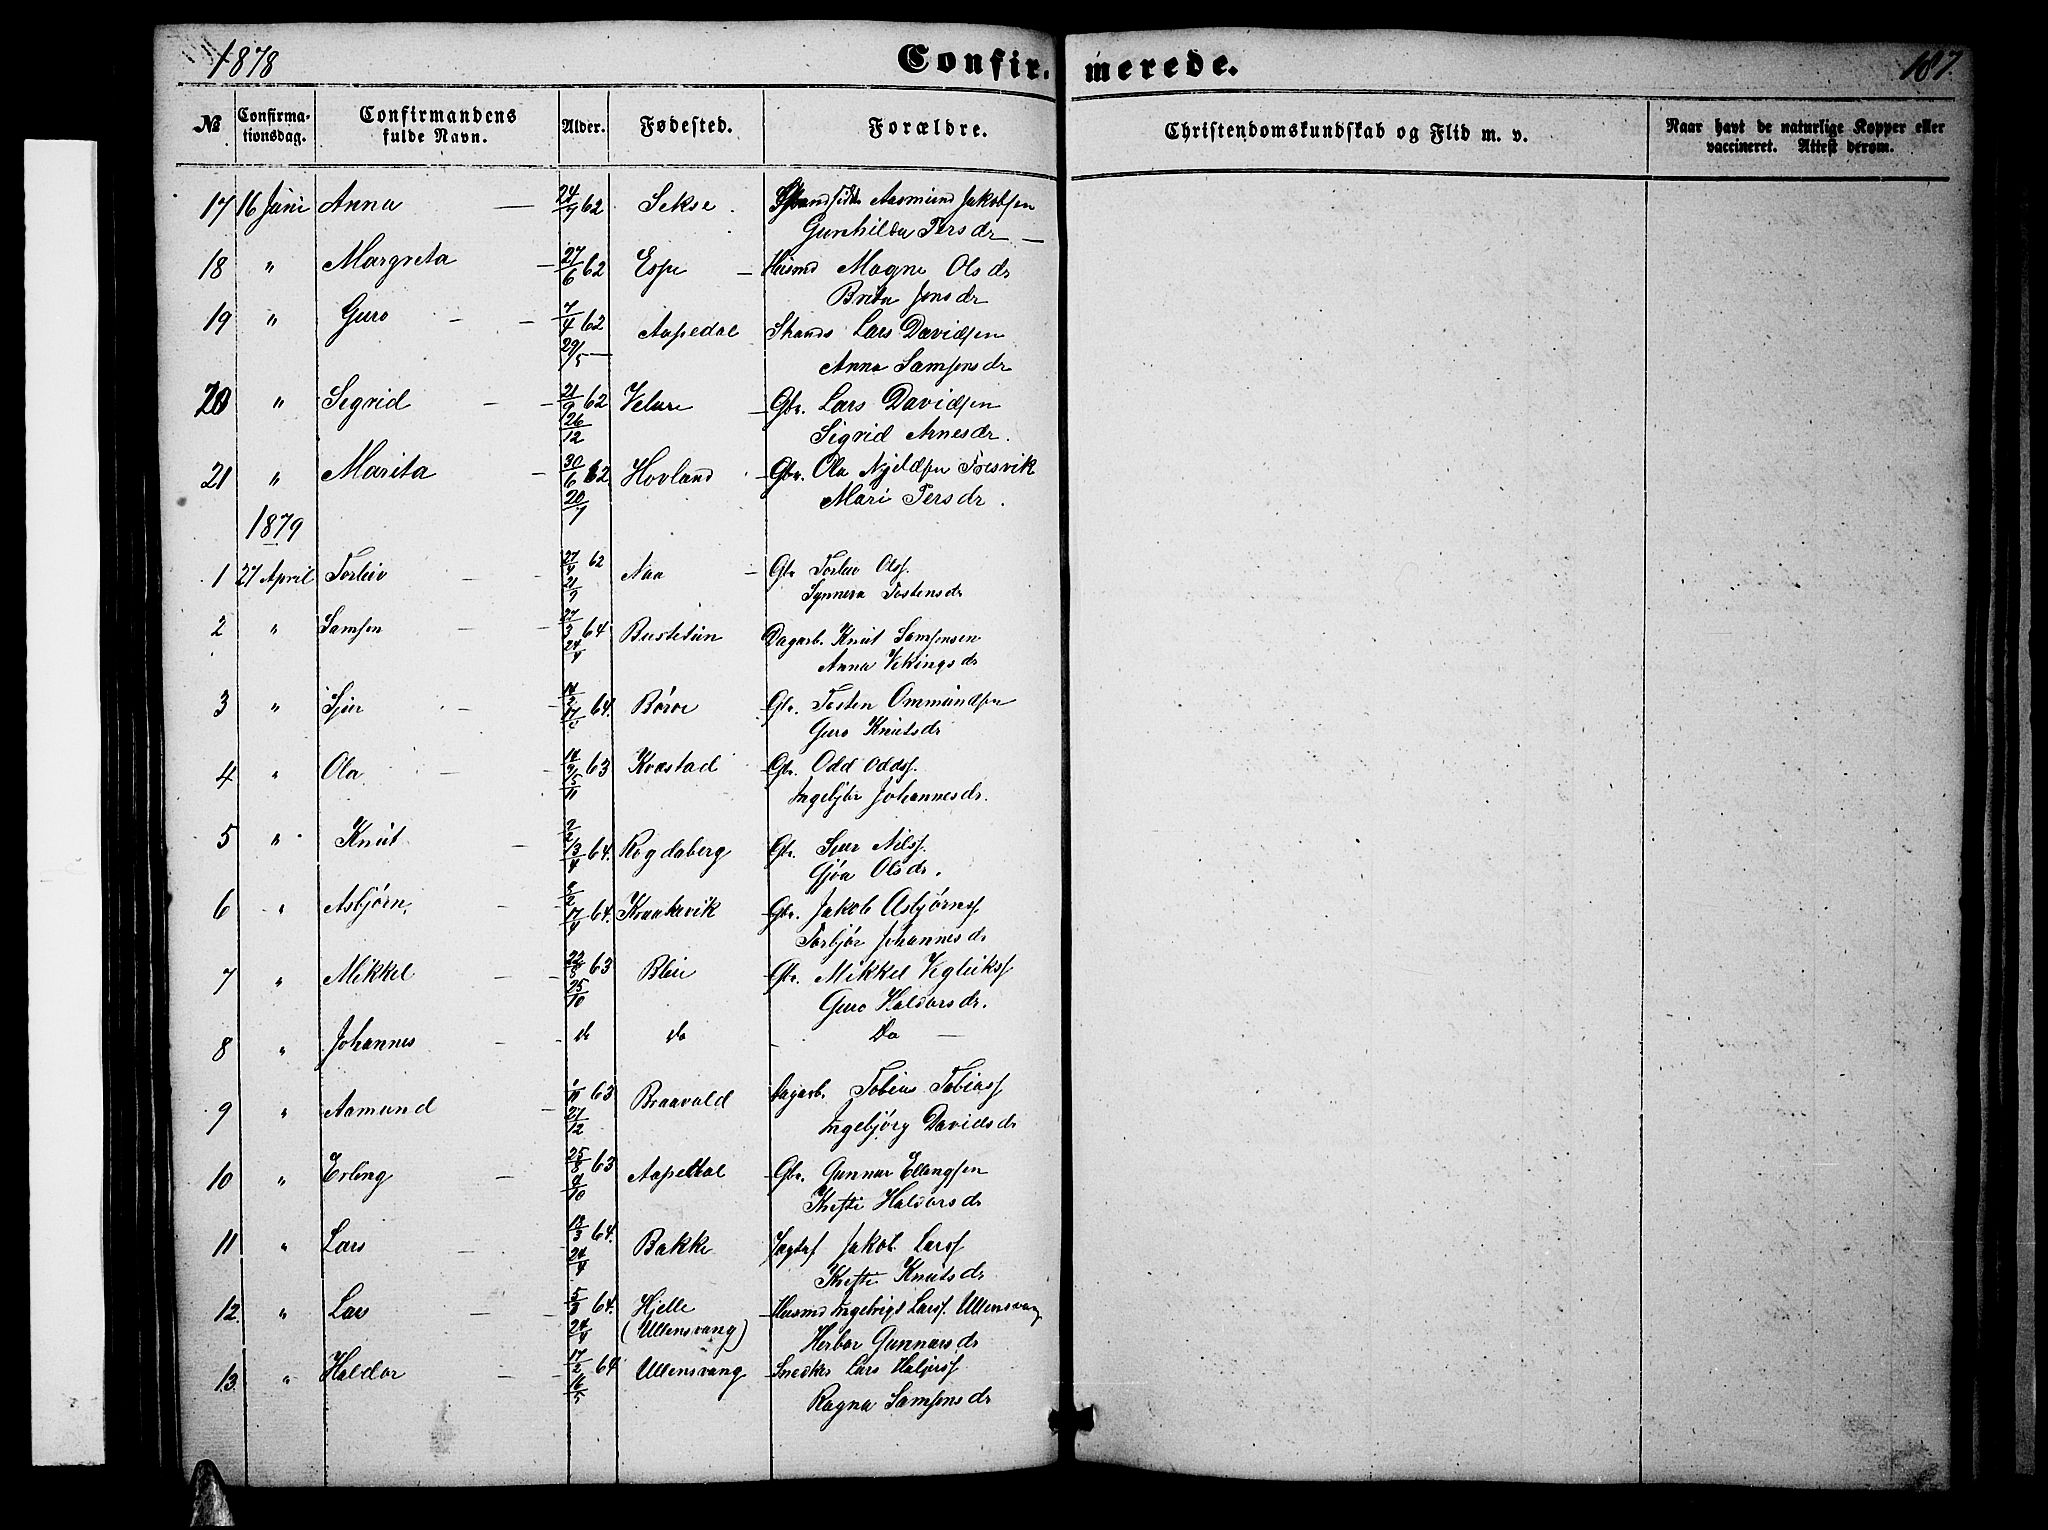 1878 Confir- merede. 187.
№ Confirma-tionsdag. Confirmandens fulde Navn. Alder. Fødested. Forældre. Christendomskundskab og Flid m. v. Naar havt de naturlige Kopper eller vaccineret. Attest derom.
17 16 Juni Anna — 62 Sekse. Aasmund Jakobsen
Gunhilda Persdr —
18 " Margreta — 27/6 62 Espe — Husmd Magne Olsdr
Brita Jonsdr
19 " Guro - - 7/4 62 Aapedal Strands Lars Davidsen
29/5 — Anna Samsonsdr
20 " Sigrid - - 21/9 62 Velure - Gbr. Lars Davidsen
26/12 Sigrid Arnesdr.
21 " Marita - 30/6 62 Hovland - Gbr. Ola Tresvik
20/7 Mari Persdr.
1879
1 27 April Torleiv - - 62 Naa - Gbr Torleiv Olss.
Synneva Tostensdr
2 " Samsen - - 64 Bustetun Dagarb. Knut Samsonsen
24/4 Anna Vikingsdr
3 " Sjur - - 64. Børve Gbr. Tosten Ommundsen
Guro Knutsdr
4 " Ola - 63 Kvestad Gbr. Odd Odds.
Ingebjør Johannesdr.
5 " Knut - 64. Rogdaberg Gbr. Sjur Nilss.
Gjøa Olsdr.
6 " Asbjørn, - - 17/4 64. Kraakevik Gbr. Jakob Asbjørns
Torbjør Johannesdr
7 " Mikkel - - 63 Bleie Gbr. Mikkel Vigleiks
25/10 Guro Haldorsdr.
8 " Johannes - - do do Do —
9 " Aamund - 63 Braavold Dagarb. Tobias Tobiass
27/12 Ingebjørg Davidsdr
10 " Erling - - 25/8 63 Aapedal Gbr. Gunnar Ellingsen
4/10 Kristi Haldorsdr
11 " Lars - 18/3 64. Bakke Jakob Larss
24/4 Kristi Knutsdr
12. " Lars - - 5/3 64. Hjelle Husmd Larss. Ullensvang
24/4 (Ullensvang) Herbor Gunnarsdr
13. " Haldor - - 17/2 64 Ullensvang Snedker Lars
16/5 Ragna Samsonsdr